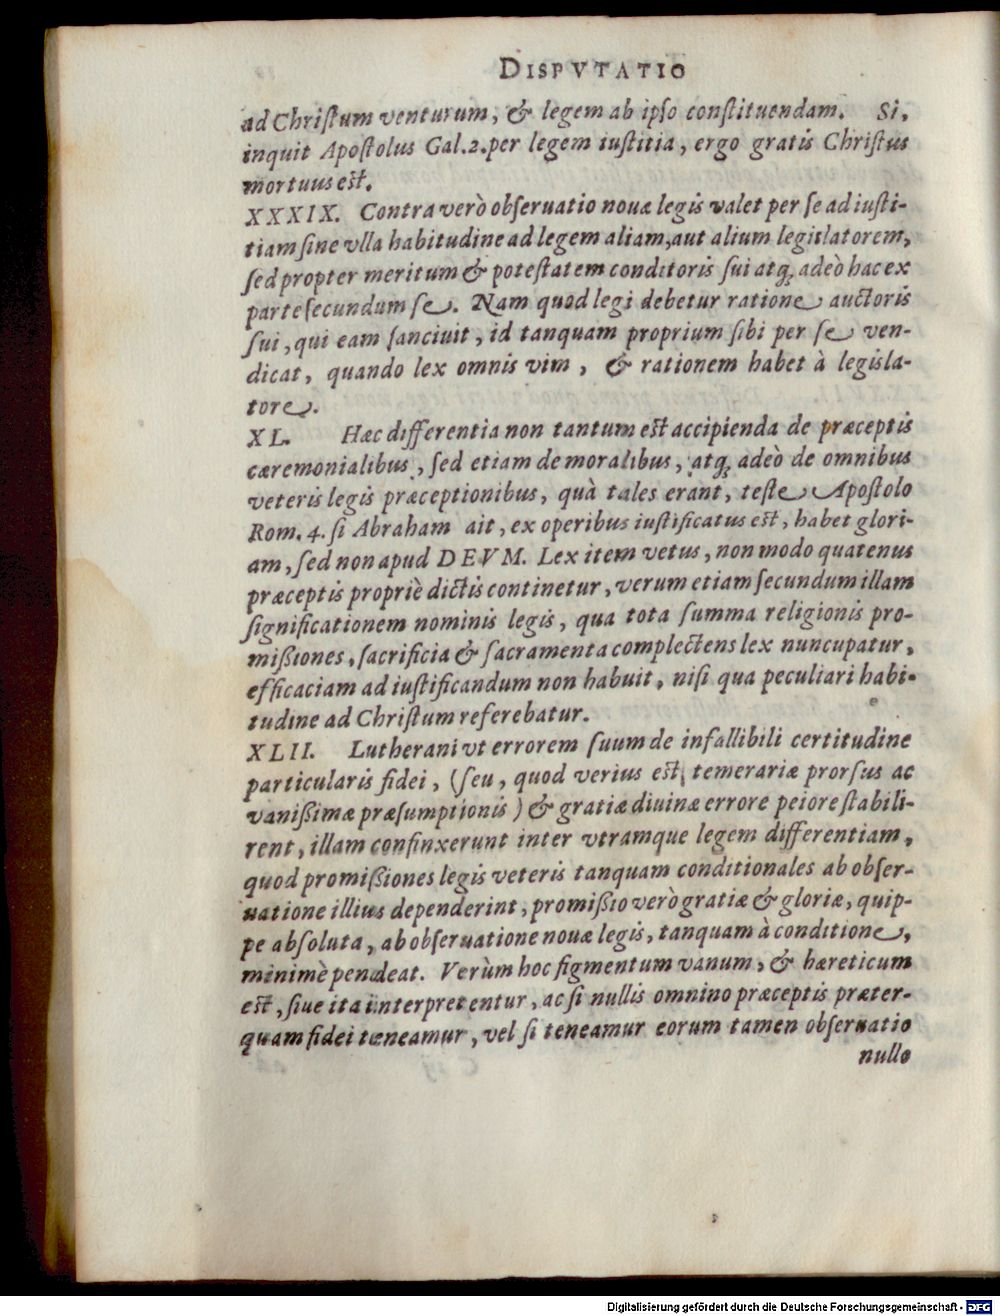 DISPVTATIO
ad Chriſtum venturum, & legem ab ipſo conſtituendam. Si,
inquit Apoſtolus Gal.2.per legem iuſtitia, ergo gratis Chriſtus
mortuus eſt.
XXXIX. Contra verò obſeruatio nouæ legis valet per ſe ad iuſti-
tiam ſine vlla habitudine ad legem aliam,aut alium legiſlatorem,
ſed propter meritum & poteſtatem conditoris ſui atq; adeò hac ex
parte ſecundum ſe. Nam quod legi debetur ratione auctoris
ſui, qui eam ſanciuit, id tanquam proprium ſibi per ſe ven-
dicat, quando lex omnis vim, & rationem habet à legisla-
tore.
XL. Hæc differentia non tantum eſt accipienda de præceptis
cæremonialibus, ſed etiam de moralibus, atq; adeò de omnibus
veteris legis præceptionibus, quà tales erant, teſte Apoſtolo
Rom. 4. ſi Abraham ait, ex operibus iuſtificatus eſt, habet glori-
am, ſed non apud DEVM. Lex item vetus, non modo quatenus
præceptis propriè dictis continetur, verum etiam ſecundum illam
ſignificationem nominis legis, qua tota ſumma religionis pro-
miſsiones, ſacrificia & ſacramenta complectens lex nuncupatur,
efficaciam ad iuſtificandum non habuit, niſi qua peculiari habi-
tudine ad Chriſtum referebatur.
XLII. Lutherani vt errorem ſuum de infallibili certitudine
particularis fidei, (ſeu, quod verius eſt, temerariæ prorſus ac
vaniſsimæ præſumptionis) & gratiæ diuinæ errore peiore ſtabili-
rent, illam confinxerunt inter vtramque legem differentiam,
quod promiſsiones legis veteris tanquam conditionales ab obſer-
uatione illius dependerint, promiſsio verò gratiæ & gloriæ, quip-
pe abſoluta, ab obſeruatione nouæ legis, tanquam à conditione,
minimè pendeat. Verùm hoc figmentum vanum, & hæreticum
eſt, ſiue ita interpretentur, ac ſi nullis omnino præceptis præter-
quam fidei teneamur, vel ſi teneamur eorum tamen obſeruatio
nullo
Digitalisierung gefördert durch die Deutsche Forschungsgemeinschaft - DFG